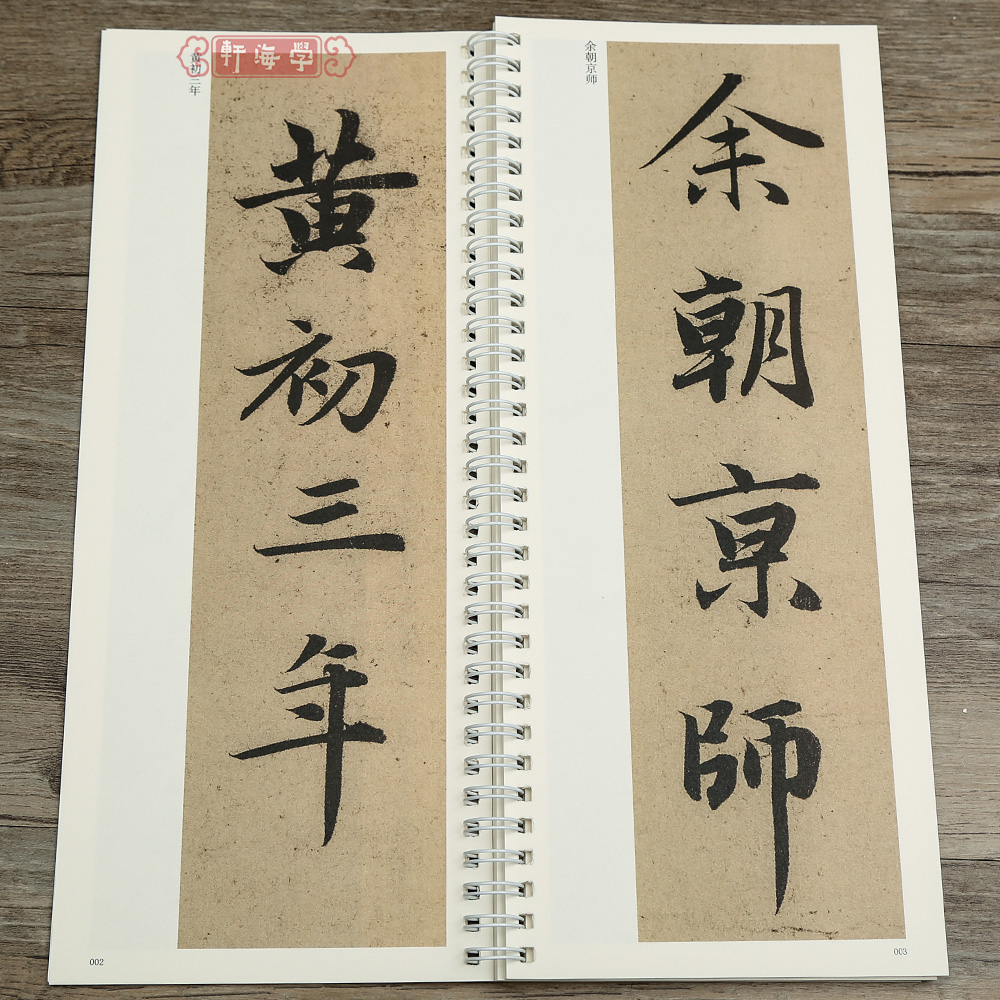 軒海学
黄初三年
黄初三年
002
余朝京师
余朝京師
003